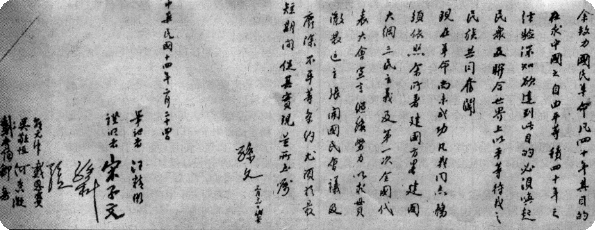 余致力國民革命凡四十年其目的
在求中國之自由平等積四十年之
經驗深知欲達到此目的必須喚起
民衆及聯合世界上以平等待我之
民族共同奮鬪
現在革命尚未成功凡我同志務
須依照余所著建國方略建國
大綱三民主義及第一次全國代
表大會宣言繼續努力以求貫
徹最近主張開國民會議及
廢除不平等條約尤須於最
短期間促其實現是所至囑
孫文
中華民國十四年二月二十四
筆記者 汪精衛
證明者 宋子文
孫科
戴恩賽
吳敬恒 何香凝